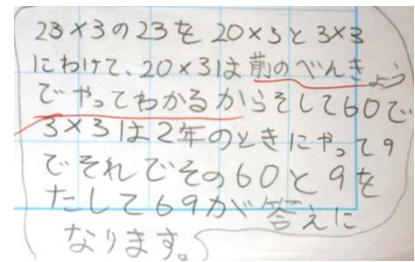 23×3の23を20×3と3×3
にわけて、20×3は前のべんきょう
でやってわかるからそして60で
3×3は2年のときにやって9
でそれでその60と9を
たして69が答えに
なります。